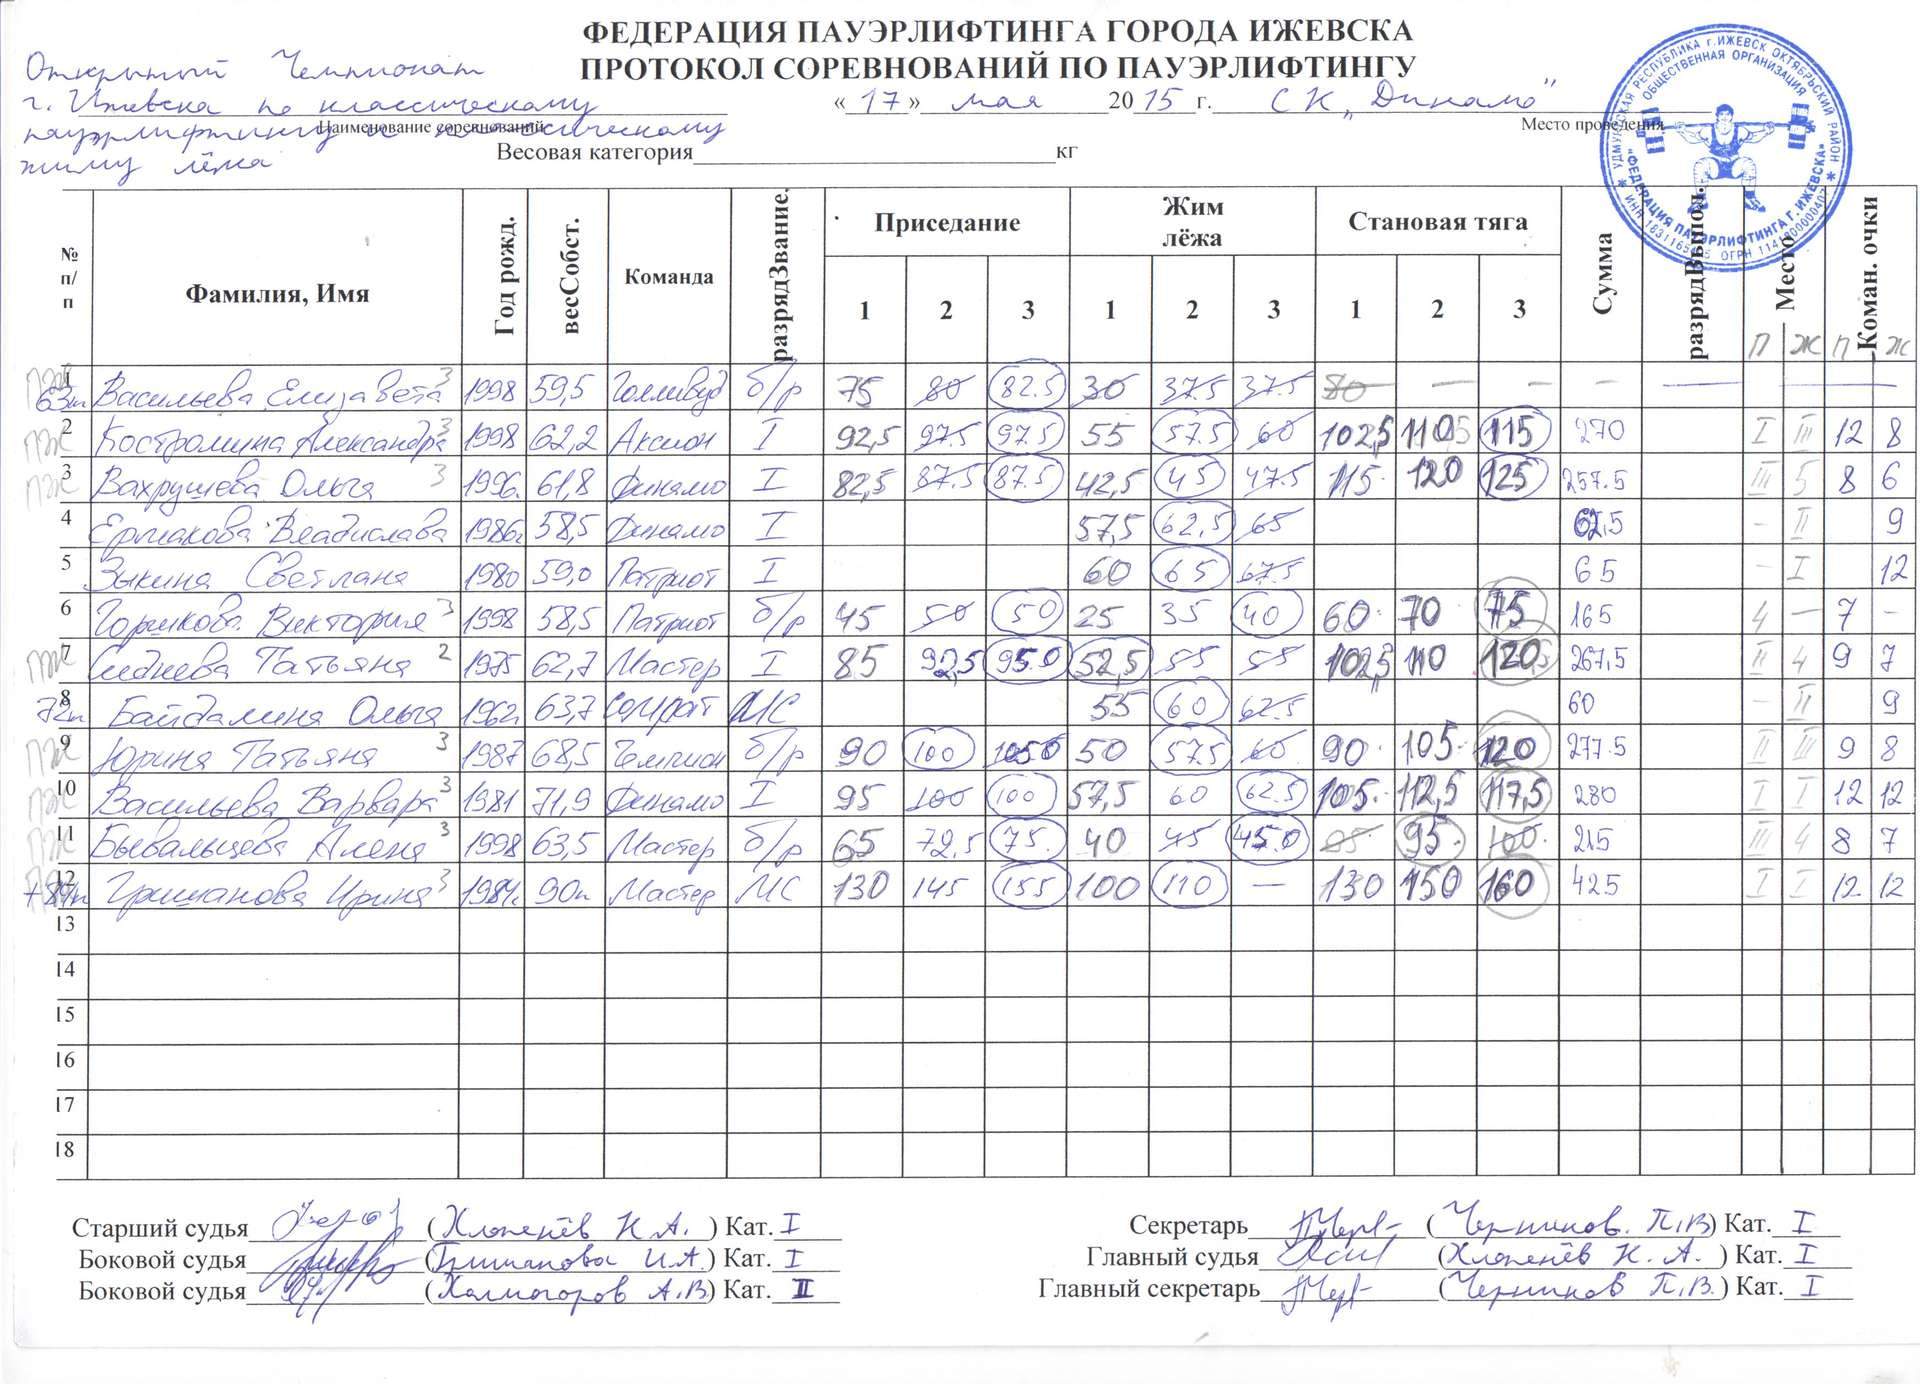 ФЕДЕРАЦИЯ ПАУЭРЛИФТИНГА ГОРОДА ИЖЕВСКА
ПРОТОКОЛ СОРЕВНОВАНИЙ ПО ПАУЭРЛИФТИНГУ
Открытый Чемпионат
г. Ижевска по классическому
пауэрлифтингу и классическому
жиму лёжа
« 17 » мая 20 15 г. СК "Динамо"
Наименование соревнований Место проведения
Весовая категория кг
УДМУРТСКАЯ РЕСПУБЛИКА г.ИЖЕВСК ОКТЯБРЬСКИЙ РАЙОН
ОБЩЕСТВЕННАЯ ОРГАНИЗАЦИЯ
"ФЕДЕРАЦИЯ ПАУЭРЛИФТИНГА Г. ИЖЕВСКА"
№ п/п Фамилия, Имя Год рожд. весСобст. Команда разрядЗвание. Приседание Жим лёжа Становая тяга Сумма разрядВыпол. Место Коман. очки
1 2 3 1 2 3 1 2 3 П Ж П Ж
63кг 1 Васильева Елизавета 3 1998 59,5 Голливуд б/р 75 80 82.5 30 37.5 37.5 80 — — —
ПЖ 2 Костромина Александра 3 1998 62,2 Аксион I 92,5 97.5 97.5 55 57.5 60 102,5 110 115 270 I III 12 8
ПЖ 3 Вахрушева Ольга 3 1996. 61,8 Динамо I 82,5 87.5 87.5 42,5 45 47.5 115 120 125 257.5 III 5 8 6
4 Ермакова Владислава 1986г 58,5 Динамо I 57,5 62,5 65 62,5 - II 9
5 Зыкина Светлана 1980 59,0 Патриот I 60 65 67.5 65 - I 12
6 Горшкова Виктория 3 1998 58,5 Патриот б/р 45 50 50 25 35 40 60 70 75 165 4 — 7 -
ПЖ 7 Сиднева Татьяна 2 1975 62,7 Мастер I 85 92,5 95.0 52,5 55 55 102,5 110 120 267,5 II 4 9 7
72кг 8 Байдалина Ольга 1962г 63,7 МС 55 60 62.5 60 - II 9
ПЖ 9 Юрина Татьяна 3 1987 68,5 Чемпион б/р 90 100 105.0 50 57.5 60 90 105 120 277.5 II III 9 8
ПЖ 10 Васильева Варвара 3 1981 71,9 Динамо I 95 100 100 57,5 60 62.5 105 112,5 117,5 280 I I 12 12
ПЖ 11 Бывальцева Алена 3 1998 63,5 Мастер б/р 65 72,5 75. 40 45 45.0 95 100 215 III 4 8 7
12 Гришанова Ирина 3 1984г. 90кг Мастер МС 130 145 155 100 110 — 130 150 160 425 I I 12 12
13
14
15
16
17
18
Старший судья (Хлопенёв Н.А.) Кат. I Секретарь (Черников П.В) Кат. I
Боковой судья (Гришанова И.А.) Кат. I Главный судья (Хлопенёв Н.А.) Кат. I
Боковой судья (Халмогоров А.В) Кат. II Главный секретарь (Черников П.В.) Кат. I